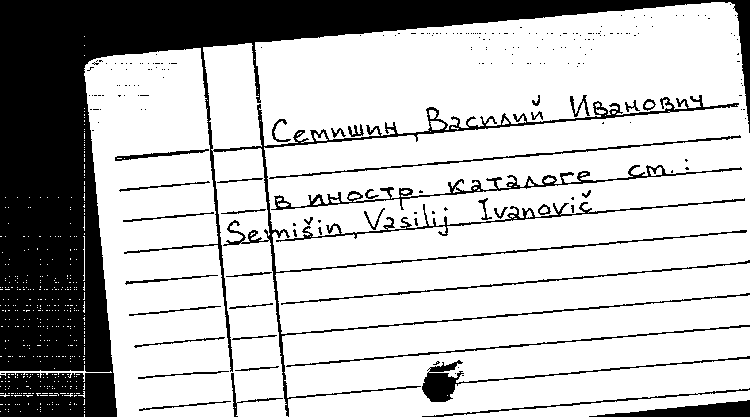 Семишин, Василий Иванович
в иностр. каталоге см.:
Semišin, Vasilij Ivanovič